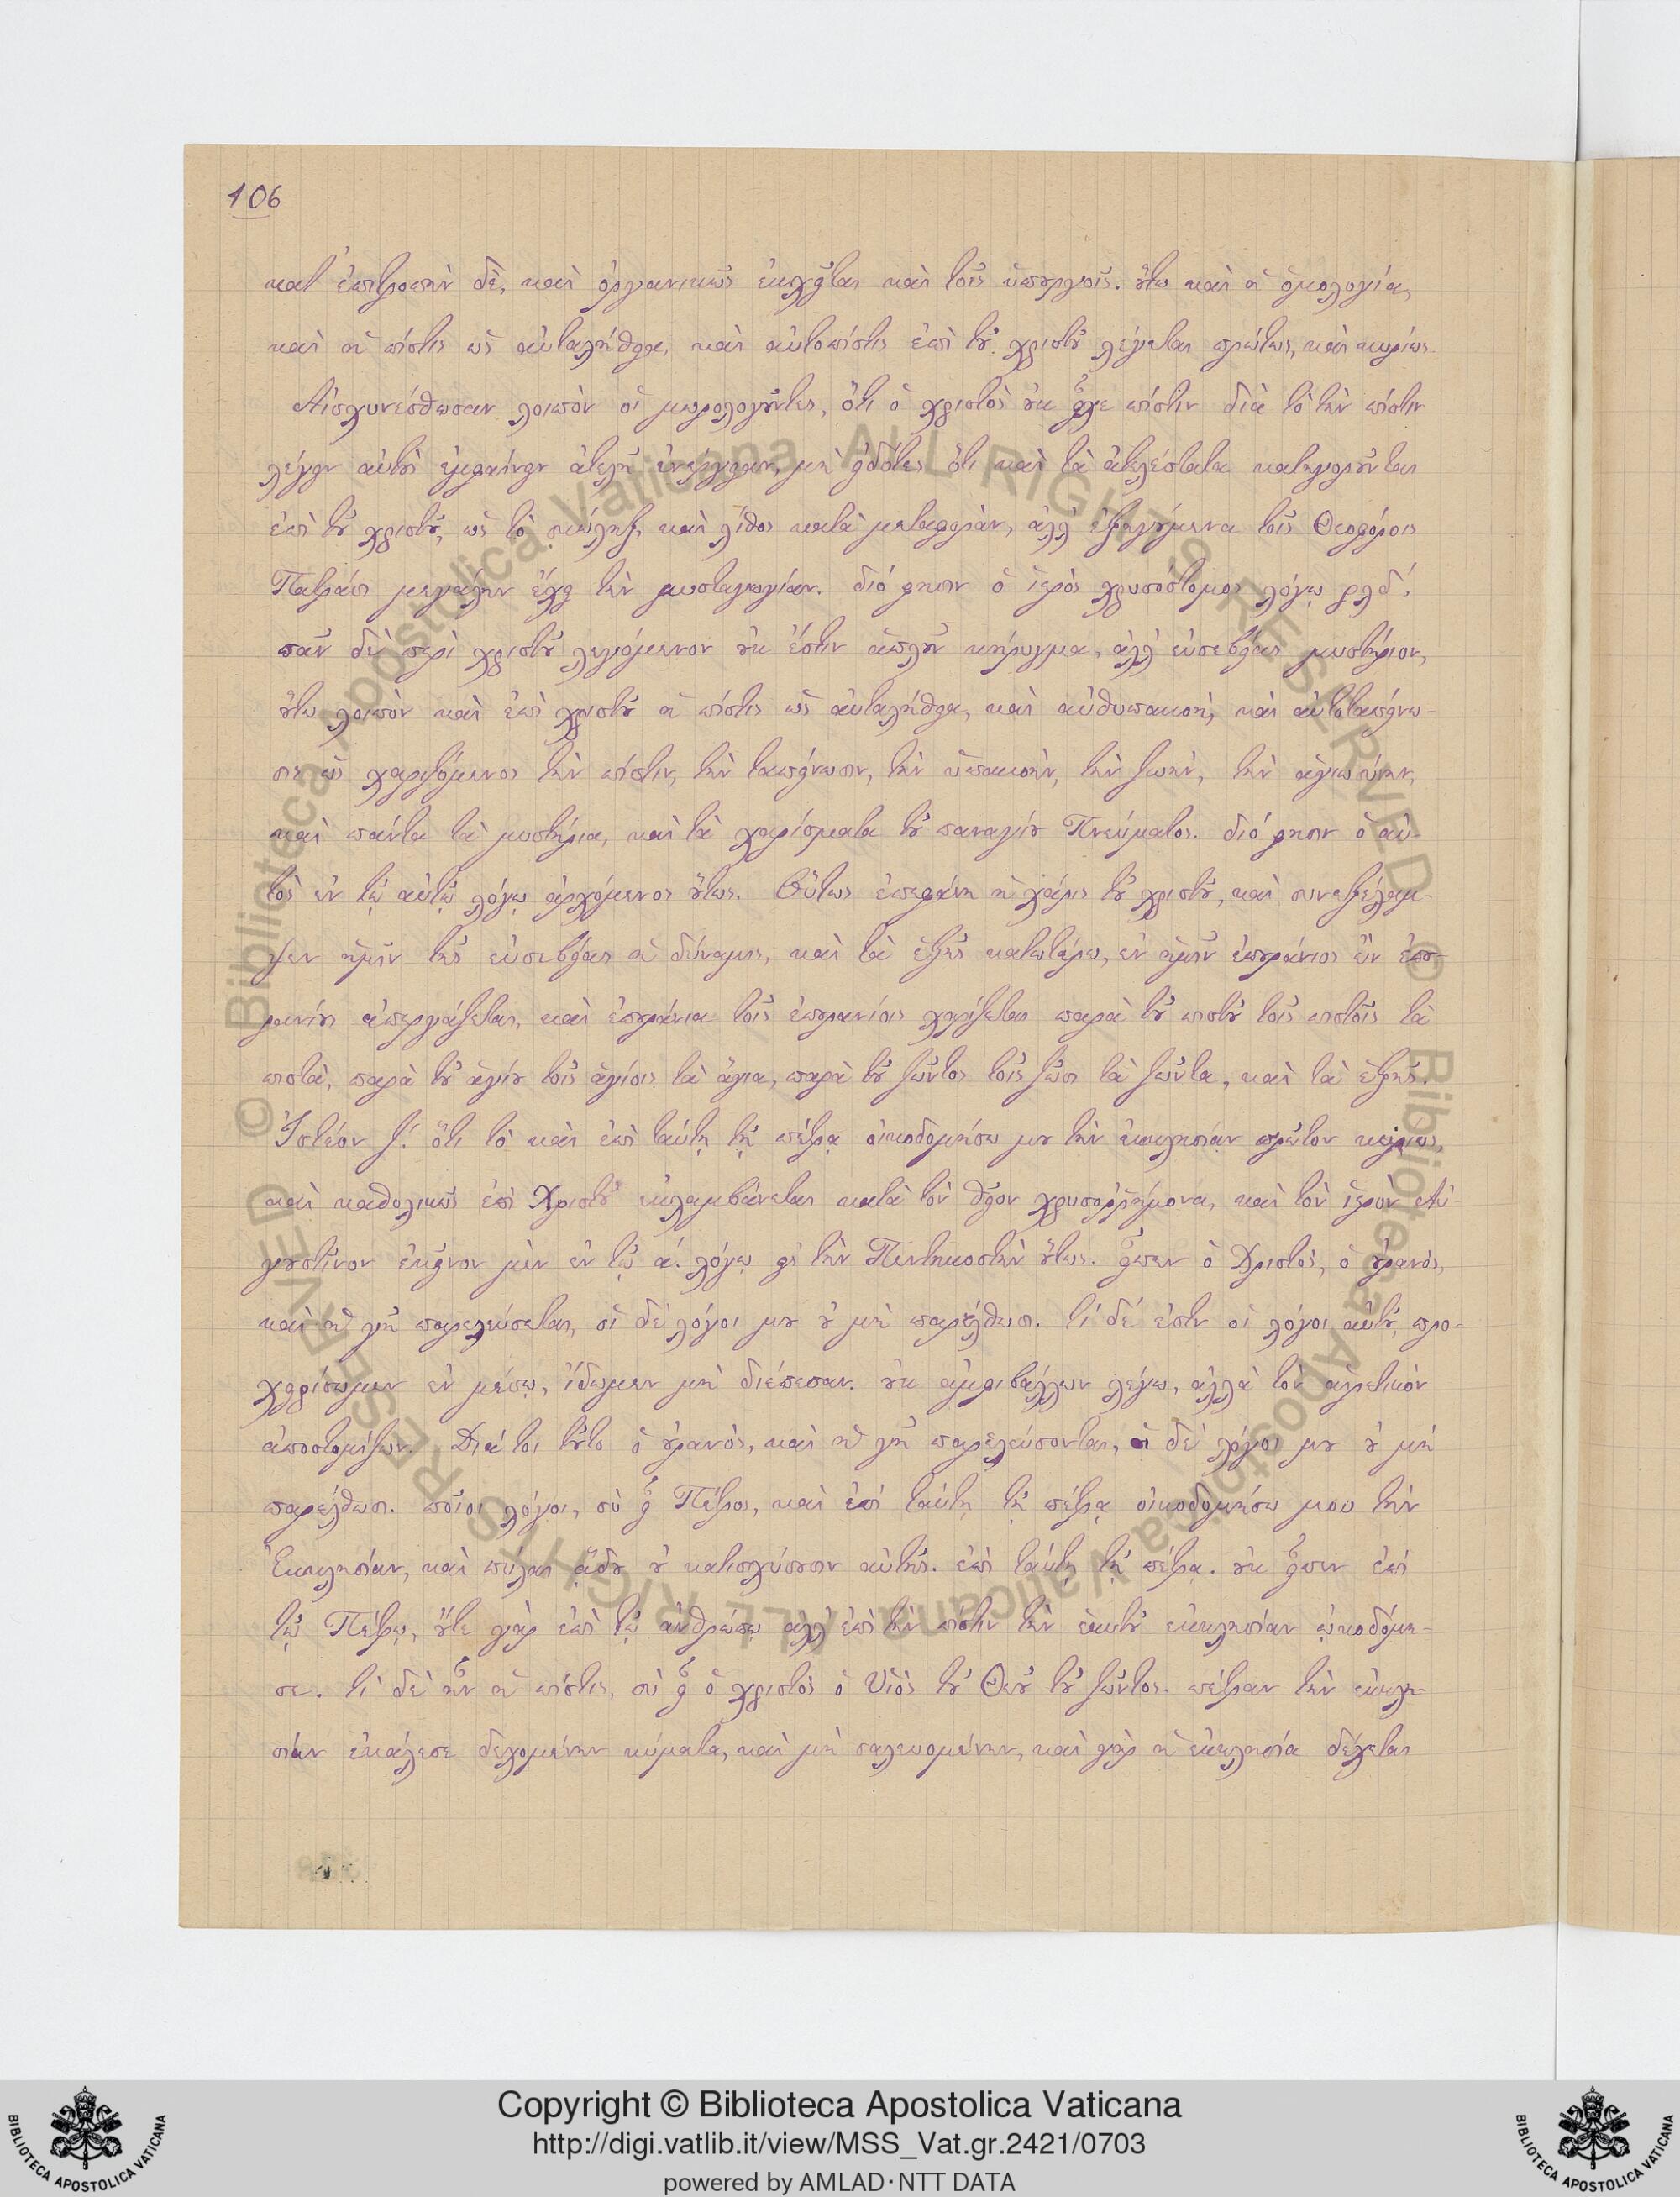 106
κατ' ἐπιτροπὴν δὲ, καὶ ὀργανικῶς ἐκχεῖται καὶ τοῖς ὑπουργοῖς. οὕτω καὶ ἡ ὁμολογία,
καὶ ἡ πίστις ὡς αὐταλήθεια, καὶ αὐτοπίστις ἐπὶ τοῦ χριστοῦ λέγεται πρώτως, καὶ κυρίως.
Αἰσχυνέσθωσαν λοιπὸν οἱ μωρολογοῦντες, ὅτι ὁ χριστὸς οὐκ εἶχε πίστιν διὰ τὸ τὴν πίστιν
λέγειν αὐτοὶ ἐμφαίνειν ἀτελῆ ἐνέργειαν, μὴ εἰδότες ὅτι καὶ τὰ ἀτελέστατα κατηγοροῦνται
ἐπὶ τοῦ χριστοῦ, ὡς τὸ σκώληξ, καὶ λίθος κατὰ μεταφορὰν, ἀλλ' ἐξηγούμενα τοῖς Θεοφόροις
Πατράσι μεγάλην ἔχει τὴν μυσταγωγίαν. διό φησιν ὁ ἱερὸς χρυσόστομος λόγῳ ρλδ'.
πᾶν δὲ περὶ χριστοῦ λεγόμενον οὐκ ἔστιν ἁπλοῦν κήρυγμα, ἀλλ' εὐσεβείας μυστήριον,
οὕτω λοιπὸν καὶ ἐπὶ χριστοῦ ἡ πίστις ὡς αὐταλήθεια, καὶ αὐθυπακοὴ, καὶ αὐτοταπείνω-
σις ὡς χαριζόμενος τὴν πίστιν, τὴν ταπείνωσιν, τὴν ὑπακοὴν, τὴν ζωὴν, τὴν ἁγιωσύνην,
καὶ πάντα τὰ μυστήρια, καὶ τὰ χαρίσματα τοῦ παναγίου Πνεύματος. διό φησιν ὁ αὐ-
τὸς ἐν τῷ αὐτῷ λόγῳ ἀρχόμενος οὕτως. Οὕτως ἐπεφάνη ἡ χάρις τοῦ χριστοῦ, καὶ συνεξέλαμ-
ψεν ἡμῖν τῆς εὐσεβείας ἡ δύναμις, καὶ τὰ ἑξῆς κατωτέρω, ἐν ἡμῖν ἐπουράνιος ὢν ἐπου-
ρανίους ἀπεργάζεται, καὶ ἐπουράνια τοῖς ἐπουρανίοις χαρίζεται παρὰ τοῦ πιστοῦ τοῖς πιστοῖς τὰ
πιστὰ, παρὰ τοῦ ἁγίου τοῖς ἁγίοις τὰ ἅγια, παρὰ τοῦ ζῶντος τοῖς ζῶσι τὰ ζῶντα, καὶ τὰ ἑξῆς.
Ἰστέον ζ'. ὅτι τὸ καὶ ἐπὶ ταύτῃ τῇ πέτρᾳ οἰκοδομήσω μου τὴν ἐκκλησίαν πρῶτον κυρίως,
καὶ καθολικῶς ἐπὶ Χριστοῦ ἐκλαμβάνεται κατὰ τὸν θεῖον χρυσορρήμονα, καὶ τὸν ἱερὸν Αὐ-
γουστῖνον ἐκεῖνον μὲν ἐν τῷ α'. λόγῳ εἰς τὴν Πεντηκοστὴν οὕτως. εἶπεν ὁ Χριστὸς, ὁ οὐρανὸς,
καὶ ἡ γῆ παρελεύσεται, οἱ δὲ λόγοι μου οὐ μὴ παρέλθωσι. τί δέ ἐστιν οἱ λόγοι αὐτοῦ, προ-
χειρίσωμεν ἐν μέσῳ, ἴδωμεν μὴ διέπεσαν. οὐκ ἀμφιβάλλων λέγω, ἀλλὰ τὸν αἱρετικὸν
ἀποστομίζων. Διά τοι τοῦτο ὁ οὐρανὸς, καὶ ἡ γῆ παρελεύσονται, οἱ δὲ λόγοι μου οὐ μὴ
παρέλθωσι. ποῖοι λόγοι, σὺ εἶ Πέτρος, καὶ ἐπὶ ταύτῃ τῇ πέτρᾳ οἰκοδομήσω μου τὴν
Ἐκκλησίαν, καὶ πύλαι ᾅδου οὐ κατισχύσουσιν αὐτῆς. ἐπὶ ταύτῃ τῇ πέτρᾳ. οὐκ εἶπεν ἐπὶ
τῷ Πέτρῳ, οὔτε γὰρ ἐπὶ τῷ ἀνθρώπῳ ἀλλ' ἐπὶ τὴν πίστιν τὴν ἑαυτοῦ ἐκκλησίαν ᾠκοδόμη-
σε. τί δὲ ἦν ἡ πίστις, σὺ εἶ ὁ χριστὸς ὁ Υἱὸς τοῦ Θεοῦ τοῦ ζῶντος. πέτραν τὴν ἐκκλη-
σίαν ἐκάλεσε δεχομένην κύματα, καὶ μὴ σαλευομένην, καὶ γὰρ ἡ ἐκκλησία δέχεται
Copyright © Biblioteca Apostolica Vaticana
http://digi.vatlib.it/view/MSS_Vat.gr.2421/0703
powered by AMLAD·NTT DATA